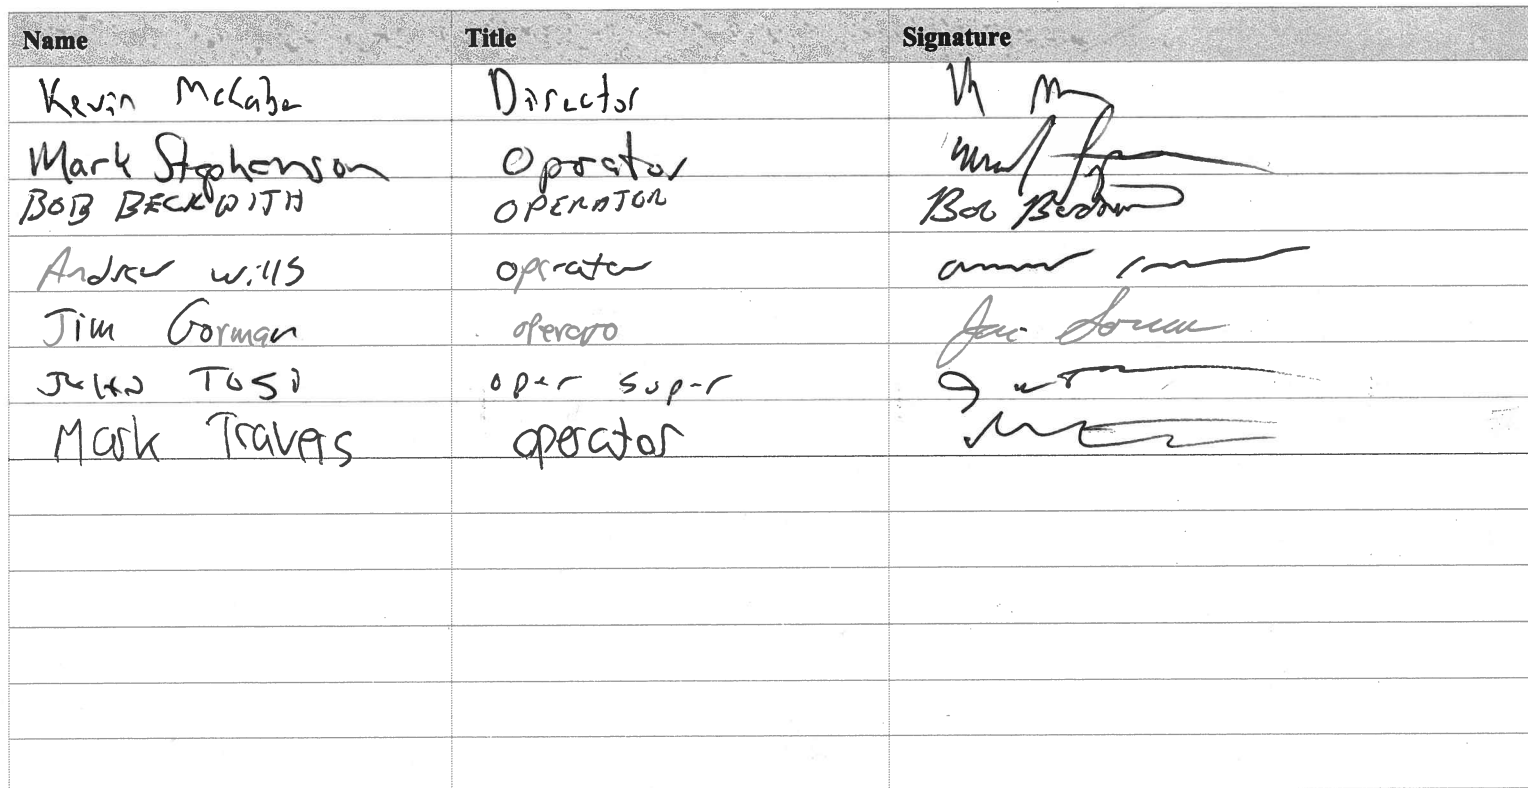 Name Title Signature
Kevin McCabe Director
Mark Stephenson Operator
BOB BECKWITH OPERATOR Bob
Andrew Wills operator
Jim Gorman operato
Tosi oper super
Mark Travers operator